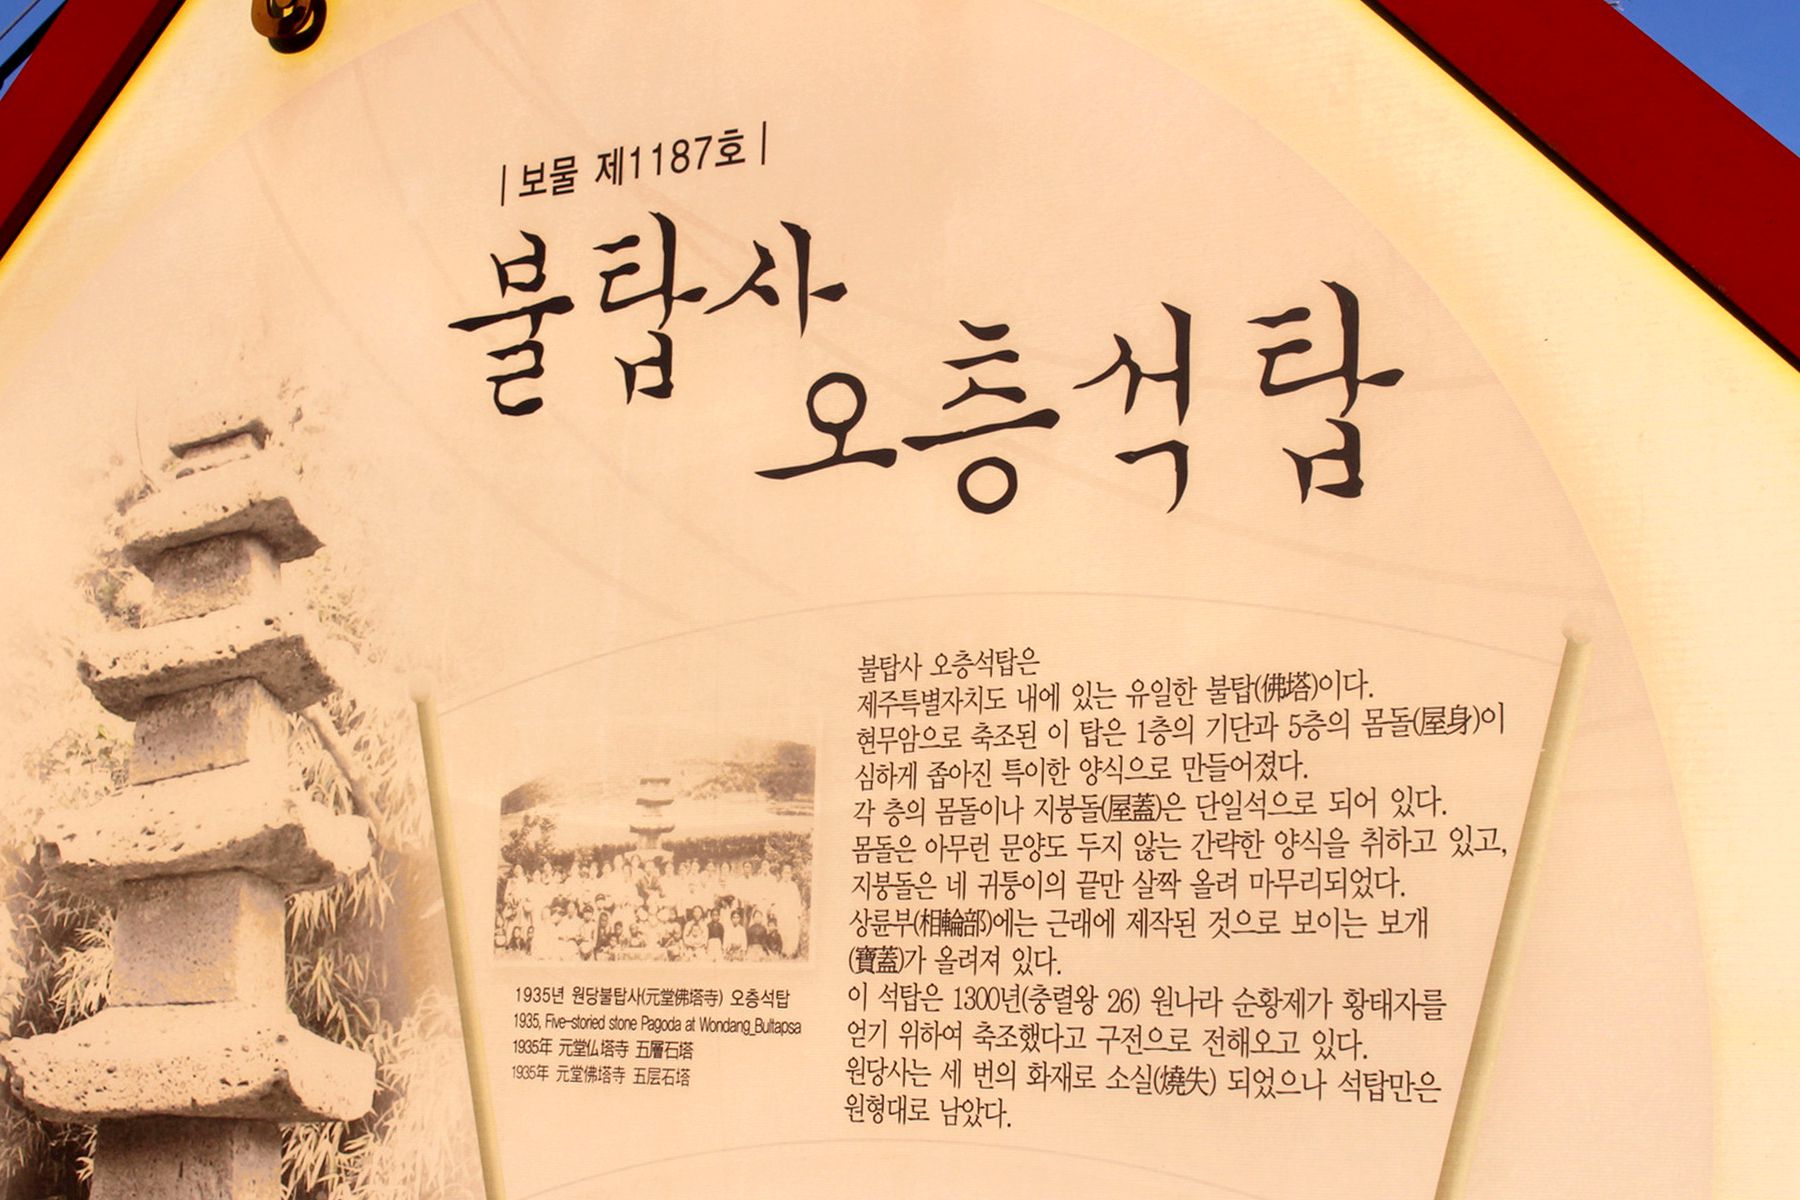 | 보물 제1187호 |
불탑사
오층석탑
불탑사 오층석탑은
제주특별자치도 내에 있는 유일한 불탑(佛塔)이다.
현무암으로 축조된 이 탑은 1층의 기단과 5층의 몸돌(屋身)이
심하게 좁아진 특이한 양식으로 만들어졌다.
각 층의 몸돌이나 지붕돌(屋蓋)은 단일석으로 되어 있다.
몸돌은 아무런 문양도 두지 않는 간략한 양식을 취하고 있고,
지붕돌은 네 귀퉁이의 끝만 살짝 올려 마무리되었다.
상륜부(相輪部)에는 근래에 제작된 것으로 보이는 보개
(寶蓋)가 올려져 있다.
이 석탑은 1300년(충렬왕 26) 원나라 순황제가 황태자를
얻기 위하여 축조했다고 구전으로 전해오고 있다.
원당사는 세 번의 화재로 소실(燒失) 되었으나 석탑만은
원형대로 남았다.
1935년 원당불탑사(元堂佛塔寺) 오층석탑
1935, Five-storied stone Pagoda at Wondang_Bultapsa
1935年 元堂仏塔寺 五層石塔
1935年 元堂佛塔寺 五层石塔